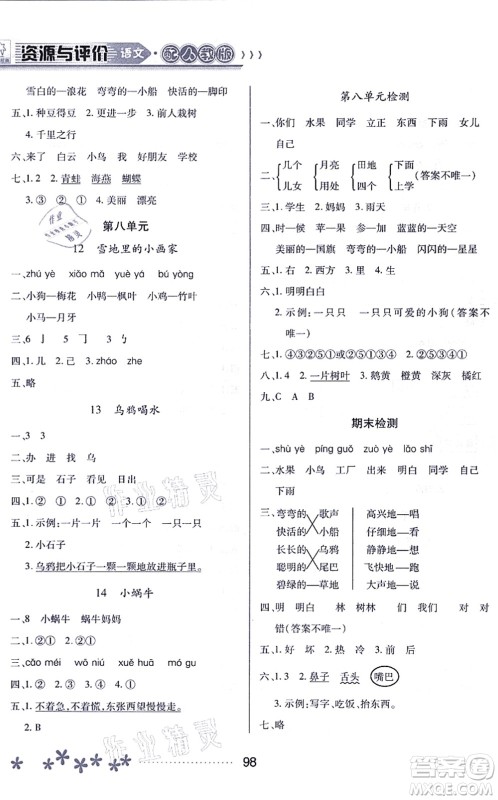 资源与评价 语文·配人教版 》》》
雪白的—浪花 弯弯的—小船 快活的—脚印
五、1. 种豆得豆 2. 助人为乐 3. 前人栽树
4. 千里之行
六、来了 白云 小鸟 我 很好朋友 学校
七、1. 2 2. 青蛙 海燕 蝴蝶
3. ③ ① ② 4. 美丽 漂亮
第八单元
12 雪地里的小画家
一、zhú yè xiǎo mǎ yuè yá bù yòng
二、小狗—梅花 小鸭—枫叶 小鸡—竹叶
小马—月牙
四、1. 儿 2. 己 3. zháo zhe
五、略
13 乌鸦喝水
一、3 3
二、办 进 找 乌
三、可是 石子 许多 出来
四、1. ① 2. ① 3. ② 4. ②
五、1. 示例：一个瓶子
2. 小石子
3. 乌鸦把小石子一颗一颗地放进瓶子里。
14 小蜗牛
一、8 小蜗牛 蜗牛妈妈
二、1. ②① 2. ①②
三、cǎo méi wō niú xuě huā mó gu
四、1. ② 2. ② 3. ①
五、1. 不着急，不着慌，东张西望慢慢走。
2. B
第八单元检测
一、你们 水果 同学 立正 东西 下雨 女儿
自己
二、几个 儿女 月亮 用处 田地 四个 下面 上学 （答案不唯一）
三、1. 学生 2. 妈妈 3. 雨天
四、时—候 苹—果 参—加 蓝蓝的—天空
美丽的—国旗 弯弯的—小船 闪闪的—星星
五、1. 右 2. 西方 3. 黑 4. 出
六、1. 明明白白
2. 示例：一只只 一只只可爱的小狗（答案不
唯一）
七、1. ④③②⑤①或②⑤①④③ 2. ④③②⑤①
八、1. 4 2. 一片树叶 3. 鹅黄 橙黄 深灰 橘红
九、C A B
期末检测
一、shù yè píng guǒ zuò yè lǎo shī
二、水果 小鸟 工厂 出来 比月 自己
下雨
三、弯弯的 歌声 高兴地—唱
快活的 小船 仔细地—看
长长的 乌鸦 静静地—想
聪明的 尾巴 飞快地—跑
碧绿的 草地 大声地—喊
四、明 明白 林 树林 们 我们 对 对
错（答案不唯一）
五、1. 好 坏 2. 热 冷 3. 开 关
六、1. 3 2. 鼻子 舌头 嘴巴
3. 示例：写字、吃饭、抬东西。
七、略
98
作业精灵